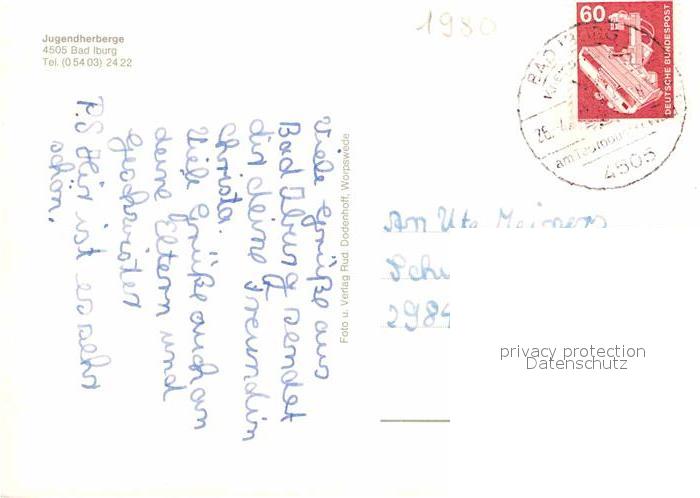 1980
Jugendherberge
4505 Bad Iburg
Tel. (0 54 03) 24 22
60
DEUTSCHE BUNDESPOST
BAD IBURG
26.
am Teutoburger
4505
Viele Grüße aus
Bad Iburg sendet
dir deine Freundin
Christa.
Viele Grüße auch an
deine Eltern und
Geschwister
P.S Hir ist es sehr
schön.
Foto u. Verlag Rud. Dodenhoff, Worpswede
An Ute Meiners
Sch
2984
privacy protection
Datenschutz